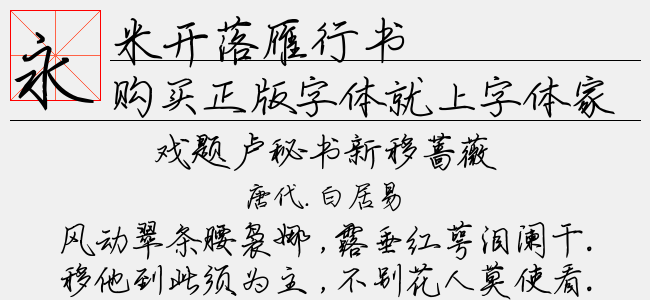 永
米开落雁行书
购买正版字体就上字体家
戏题卢秘书新移蔷薇
唐代.白居易
风动翠条腰袅娜,露垂红萼泪阑干.
移他到此须为主,不别花人莫使看.